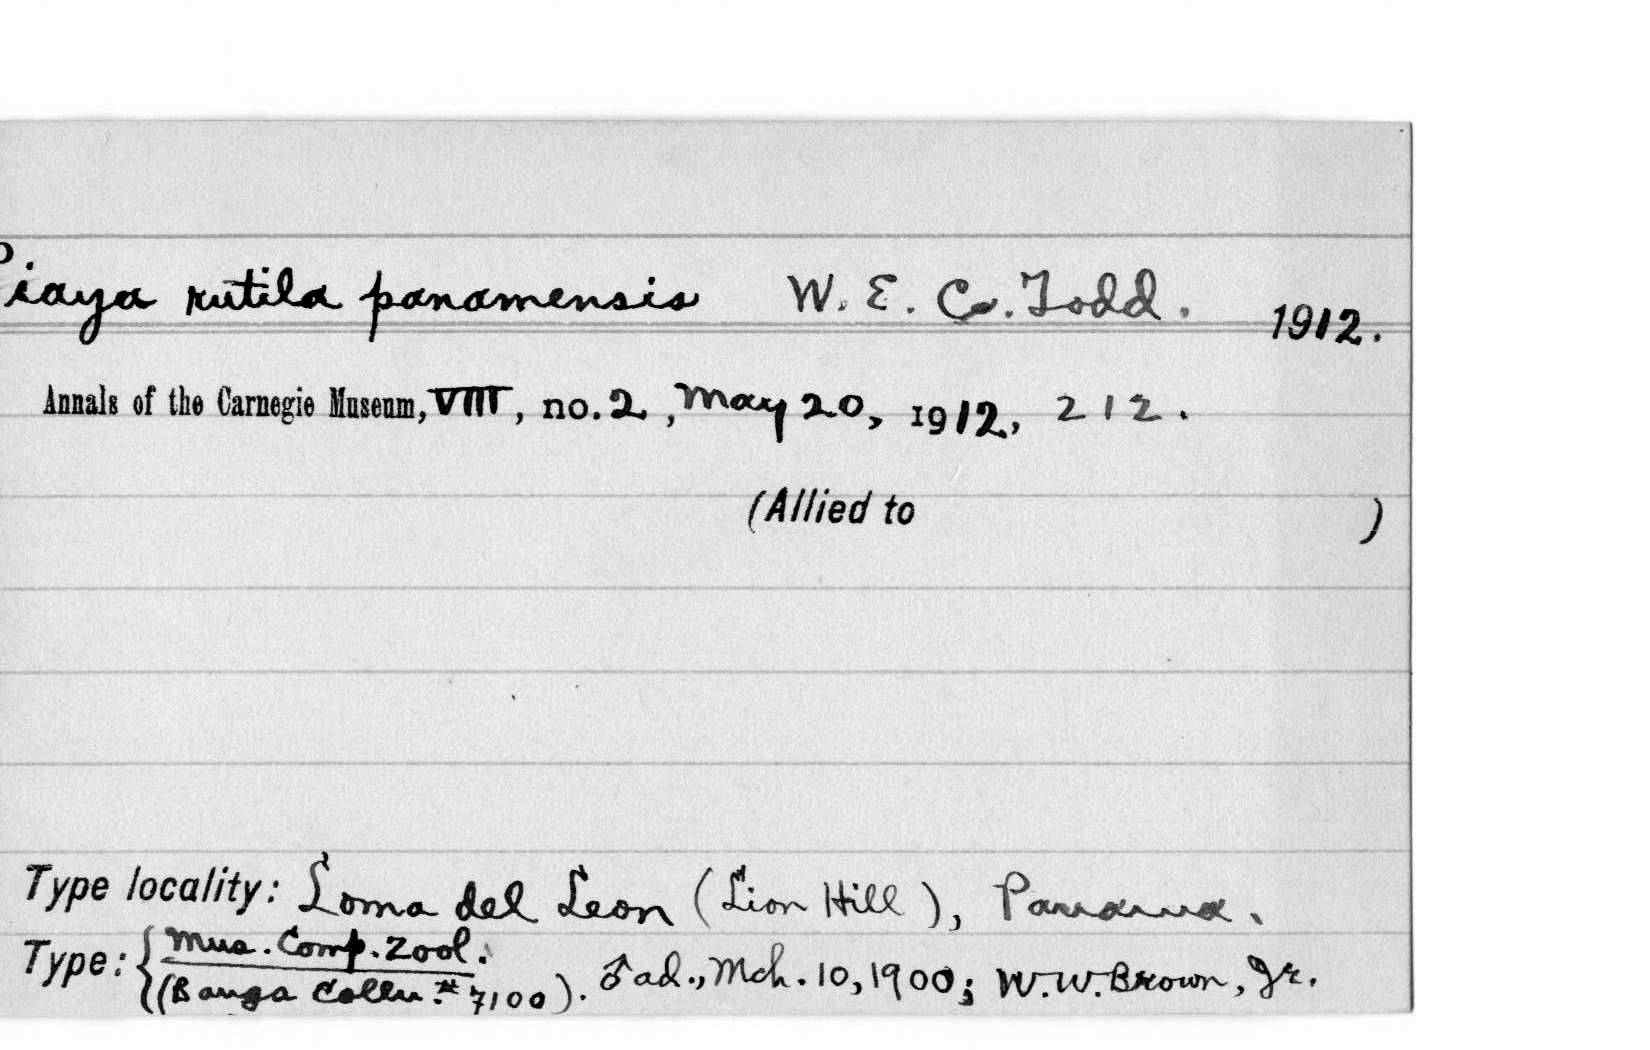 Piaya rutila panamensis W. E. C. Todd. 1912.
Annals of the Carnegie Museum, VIII, no. 2, May 20, 1912, 212.
(Allied to )
Type locality: Loma del Leon (Lion Hill), Panama.
Type: { Mus. Comp. Zool.
(Bangs Colln. # 7100). ♂ ad., Mch. 10, 1900; W. W. Brown, Jr.